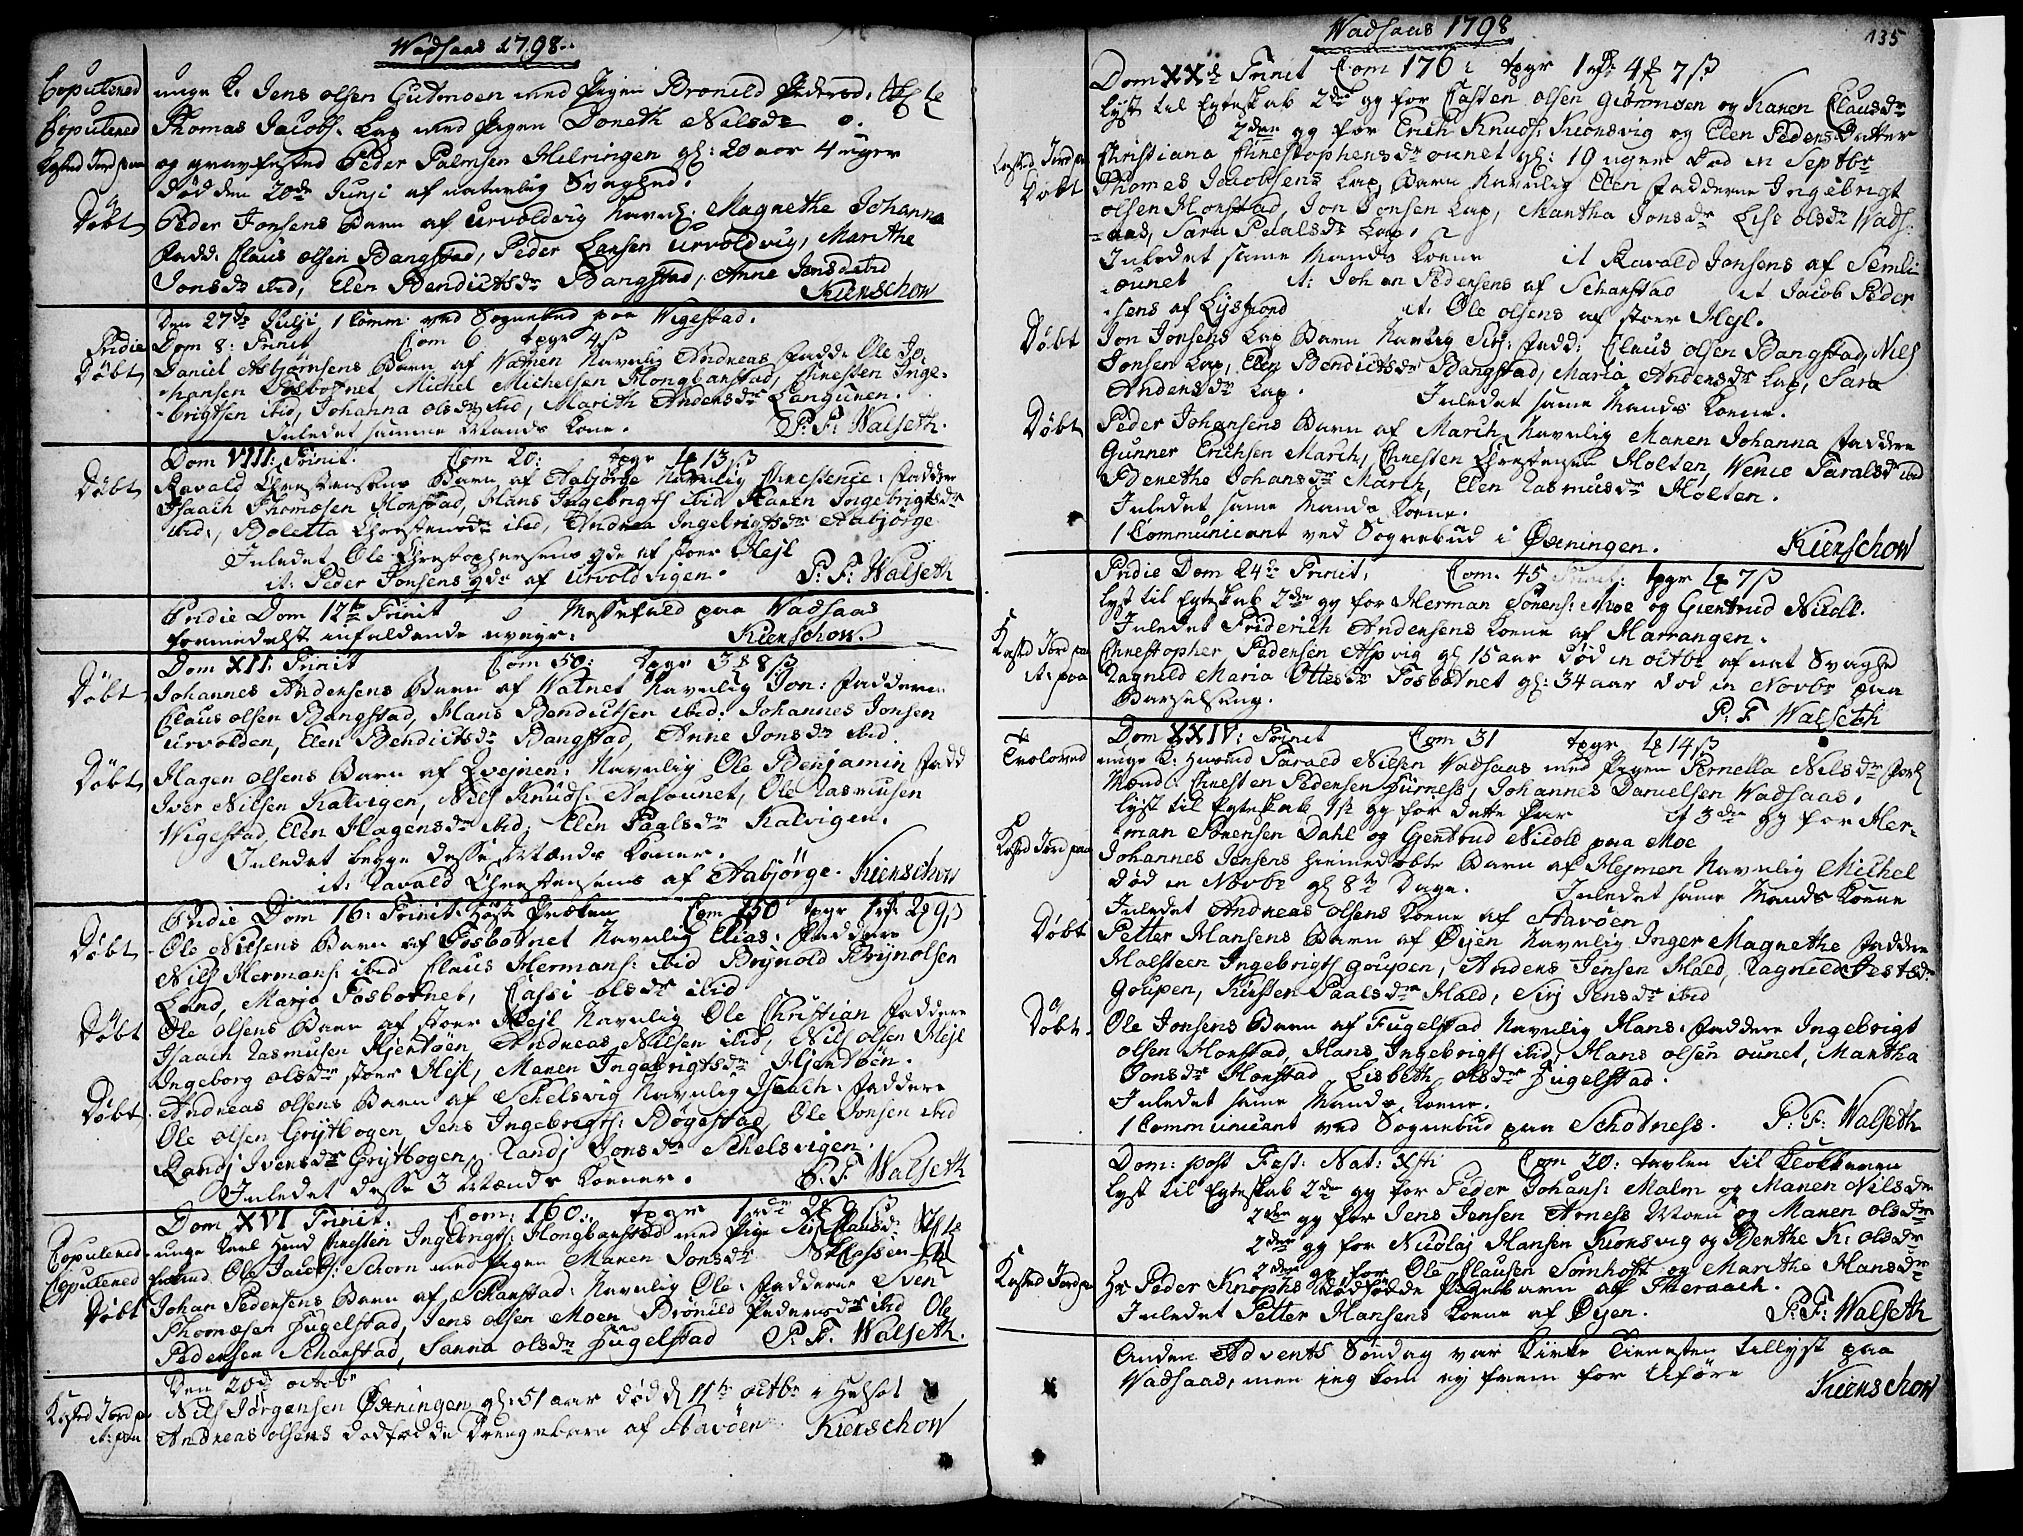 Wadsaas 1798.
Copulered unge K. Jens Olsen Gutvigen med Pigen Bronild Pedersd.
Copulered Thomas Jacobs. Lap med Pigen Doneth Nilsdr
Kasted Jord paa og gravfested Peder Palmsen Helringen gl: 20 aar 4 uger
død den 20de Junji af naturlig Svaghed.
Døbt Peder Jonsens Barn af Urvoldvig Navnl. Magnethe Johanna
Fadd. Claus Olsen Bangstad, Peder Larsen Urvoldvig, Marithe
Jonsdr ibid, Elen Bendictsdr Bangstad, Anne Jonsdr ibid
Kierschow
Den 27de Julji 1 Comm: ved Sognebud paa Wigestad.
Pridie Dom 8: Trinit Com 6 tpgr 4 ß
Døbt Daniel Asbjørnsens Barn af Vatnen Navnlig Andreas Fadd. Ole Jo-
hansen Fosbotnet, Michel Michelsen Hongbarstad, Christen Inge-
brigtsen ibid, Johanna Olsdr ibid, Marith Andersdr Langunen.
Inledet samme Mands Kone. P: F: Walseth.
Dom VIII: Trinit: Com 20: tpgr 13 ß
Døbt Ravald Christensens Barn af Aabjørge Navnlig Christence: Faddere
Isaach Thomæsen Horstad, Hans Ingebrigts ibid Karen Ingebrigtsdr
ibid, Boletta Christensdr ibid, Andrea Ingebrigtsdr Aabjørge
Inledet Ole Christophersens qde af stoer Hejl
it: Peder Jonsens qde af Urvoldvigen. P: F: Walseth
Pridie Dom 12te Trinit Messefald paa Wadsaas
formedelst infaldende uvejr. Kierschow.
Dom XII: Trinit Com 50: tpgr 3 8 ß
Døbt Johannes Andersens Barn af Vatnet Navnlig Jon: Faddere
Claus Olsen Bangstad, Hans Bendictsen ibid: Johannes Jonsen
Urvolden, Elen Bendictsdr Bangstad, Anne Jonsdr ibid.
Døbt Hagen Olsens Barn af Qvejnen: Navnlig Ole Benjamin Fadd
Iver Nilsen Kalvigen, Nils Knuds: Aasounet, Ole Rasmusen
Wigestad, Elen Hagensdr ibid, Elen Paalsdr Kalvigen.
Inledet begge disse Mænds Koner.
it: Ravald Christensens af Aabjørge. Kierschow
Pridie Dom 16: Trinit: Høst Præken Com 150 tpgr 1 rd 2 9 ß
Døbt Ole Nilsens Barn af Fosbotnet Navnlig Elias: Faddere
Nils Hermans: ibid Claus Hermans: ibid Brynold Brynolsen
Lund, Marja Fosbotnet, Cassi Olsdr ibid
Døbt Ole Olsens Barn af stoer Hejl Navnlig Ole Christian Faddere
Isaach Rasmusen Hjertøen Andreas Nilsen ibid, Nils Olsen Hejl
Ingeborg Olsdr stoer Hejl, Maren Ingebrigtsdr Hjertøen.
Døbt Andreas Olsens Barn af Sehelsvig Navnlig Isaach: Faddere
Ole Olsen Grytbogen, Jens Ingebrigts: Bøgestad, Ole Jonsen ibid
Randj Iversdr Grytbogen, Randj Jonsdr Sehelsvigen.
Inledet disse 3 Mænds Koner. P: F: Walseth
Dom XVI Trinit: Com: 160: tpgr 1 rd
Copulered unge Karl Christen Ingebrigts: Hongbarstad med Pige Siri Clausdr
Copulered Ole Jacobs: Schorn med Pigen Maren Jonsdr
Døbt Johan Pedersens Barn af Scharstad: Navnlig Ole: Faddere Sven
Thomæsen Fugelstad, Jens Olsen Moen, Bronild Pedersdr ibid Ole
Pedersen Scharstad, Sanna Olsdr Fugelstad P: F: Walseth.
Den 20de Octobr
Kasted Jord p. Nils Jørgensen Øxningen gl: 51 aar død d 11te Octbr
it: paa Andreas Olsens dødfødde Drengebarn af Havøen Kierschow
Wadsaas 1798 135
Dom XXde Trinit Com 176: tpgr 1 rdr 4 7 ß
lyst til Egteskab 2de gg for Casten Olsen Giørmoen og Karen Clausdr
2den gg for Erich Knuds: Kronsvig og Elen Peders Datter
Kasted Jord paa Christiana Christophersdr Ounet gl: 19 uger død in Septbr
Døbt Thomes Jacobsens Lap Barn Navnlig Elen Fadderne Ingebrigt
Olsen Horstad, Jon Jonsen Lap, Martha Jonsdr Lise Olsdr Wads-
aas, Sara Paalsdr Lap.
Inledet same Mands Koene it Ravald Jonsens af Semli-
ounet it: Johan Pedersens af Scharstad it Jacob Peder
sens af Lysfiord it: Ole Olsens af stoer Hejl.
Døbt Jon Jonsens Lap Barn Navnlig Siri: Fadd: Claus Olsen Bangstad, Nils
Jonsen Lap, Elen Bendictsdr Bangstad, Maria Andersdr Lap, Sara
Andersdr Lap. Inledet same Mands Koene.
Døbt Peder Johansens Barn af March Navnlig Maren Johanna Faddere
Gunner Erichsen March, Christen Christensen Holten, Wence Taraldsdr ibid
Berethe Johansdr March, Elen Rasmusdr Holten.
Inledet same Mands Koene.
1 Communicant ved Sognebud i Øxningen. Kierschow
Pridie Dom 24de Trinit. Com. 45 tpgr 7 ß
lyst til Egteskab 2de gg for Herman Sørens: Moe og Giertrud Nicol.
Inledet Friderich Andersens Koene af Harrangen.
Kasted Jord paa Christopher Pedersen Aspvig gl 15 aar død in Octbr af nat Svaghed
it: paa Ragnild Maria Ottesdr Fosbotnet gl: 34 aar død in Novbr paa
Barselseng.
P: F Walseth
Dom XXIV: Trinit Com 31 tpgr 14 ß
Troloved unge K: Taralld Nilsen Vadsaas med Pigen Pernella Nilsdr
Mænd: Christen Pedersen Furness, Johannes Danielsen Wadsaas.
lyst til Egteskab 1ste gg for dette Par it 3die gg for Her-
man Sørensen Dahl og Gjertrud Nicol paa Moe
Kasted Jord paa Johannes Jensens hiemedøbte Barn af Hejmen Navnlig Michel
død in Novbr gl 8te Dage. Inledet same Mands Koene
Inledet Andreas Olsens Koene af Havøen
Døbt Petter Hansens Barn af Øyen Navnlig Inger Magnethe Faddere
Holsteen Ingebrigts Goupen, Anders Jensen Hald, Ragnild
Goupen, Kirsten Paalsdr Hald, Sirj Jensdr ibid
Døbt Ole Jonsens Barn af Fugelstad Navnlig Hans: Faddere Ingebrigt
Olsen Horstad, Hans Ingebrigts ibid, Hans Olsen Ounet, Martha
Jonsdr Horstad Lisbeth Olsdr Fugelstad.
Inledet same Mands Koene.
1 Communicant ved Sognebud paa Schotness. P: F: Walseth
Dom: post Fest: Nat: Xsti Com 20: tavlen til Klokkeren
lyst til Egteskab 2de gg for Peder Johans: Malm og Maren Nilsdr
2den gg for Jens Jensen Arness Moen og Maren Olsdr
2den gg for Nicolaj Hansen Kronsvig og Berthe K: Olsdr
2den gg for Ole Clausen Sørnhoft og Marithe Hansdr
Kasted Jord paa Hr Peder Knophs dødfødde Pigebarn af Theraach.
Inledet Petter Hansens Koene af Øyen. P: F: Walseth
Anden Advents Søndag var Kirke Tienesten tillyst paa
Wadsaas, men ieg kom ej frem for Uføre Kierschow